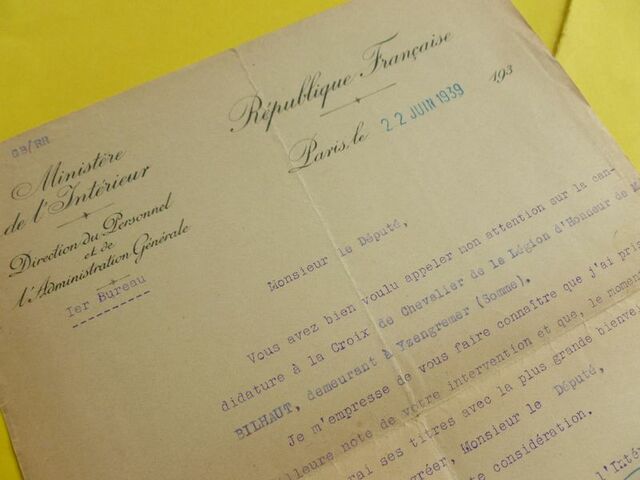 République Française
Paris, le 22 JUIN 1939 193
GB/RR
Ministère
de l'Intérieur
Direction du Personnel
et de
l'Administration Générale
Ier Bureau
Monsieur le Député,
Vous avez bien voulu appeler mon attention sur la can-
didature à la Croix de Chevalier de la Légion d'Honneur de M
BILHAUT, demeurant à Yzengremer (Somme).
Je m'empresse de vous faire connaître que j'ai pris
eilleure note de votre intervention et que, le moment
rai ses titres avec la plus grande bienvei
gréer, Monsieur le Député,
te considération.
l'Inté